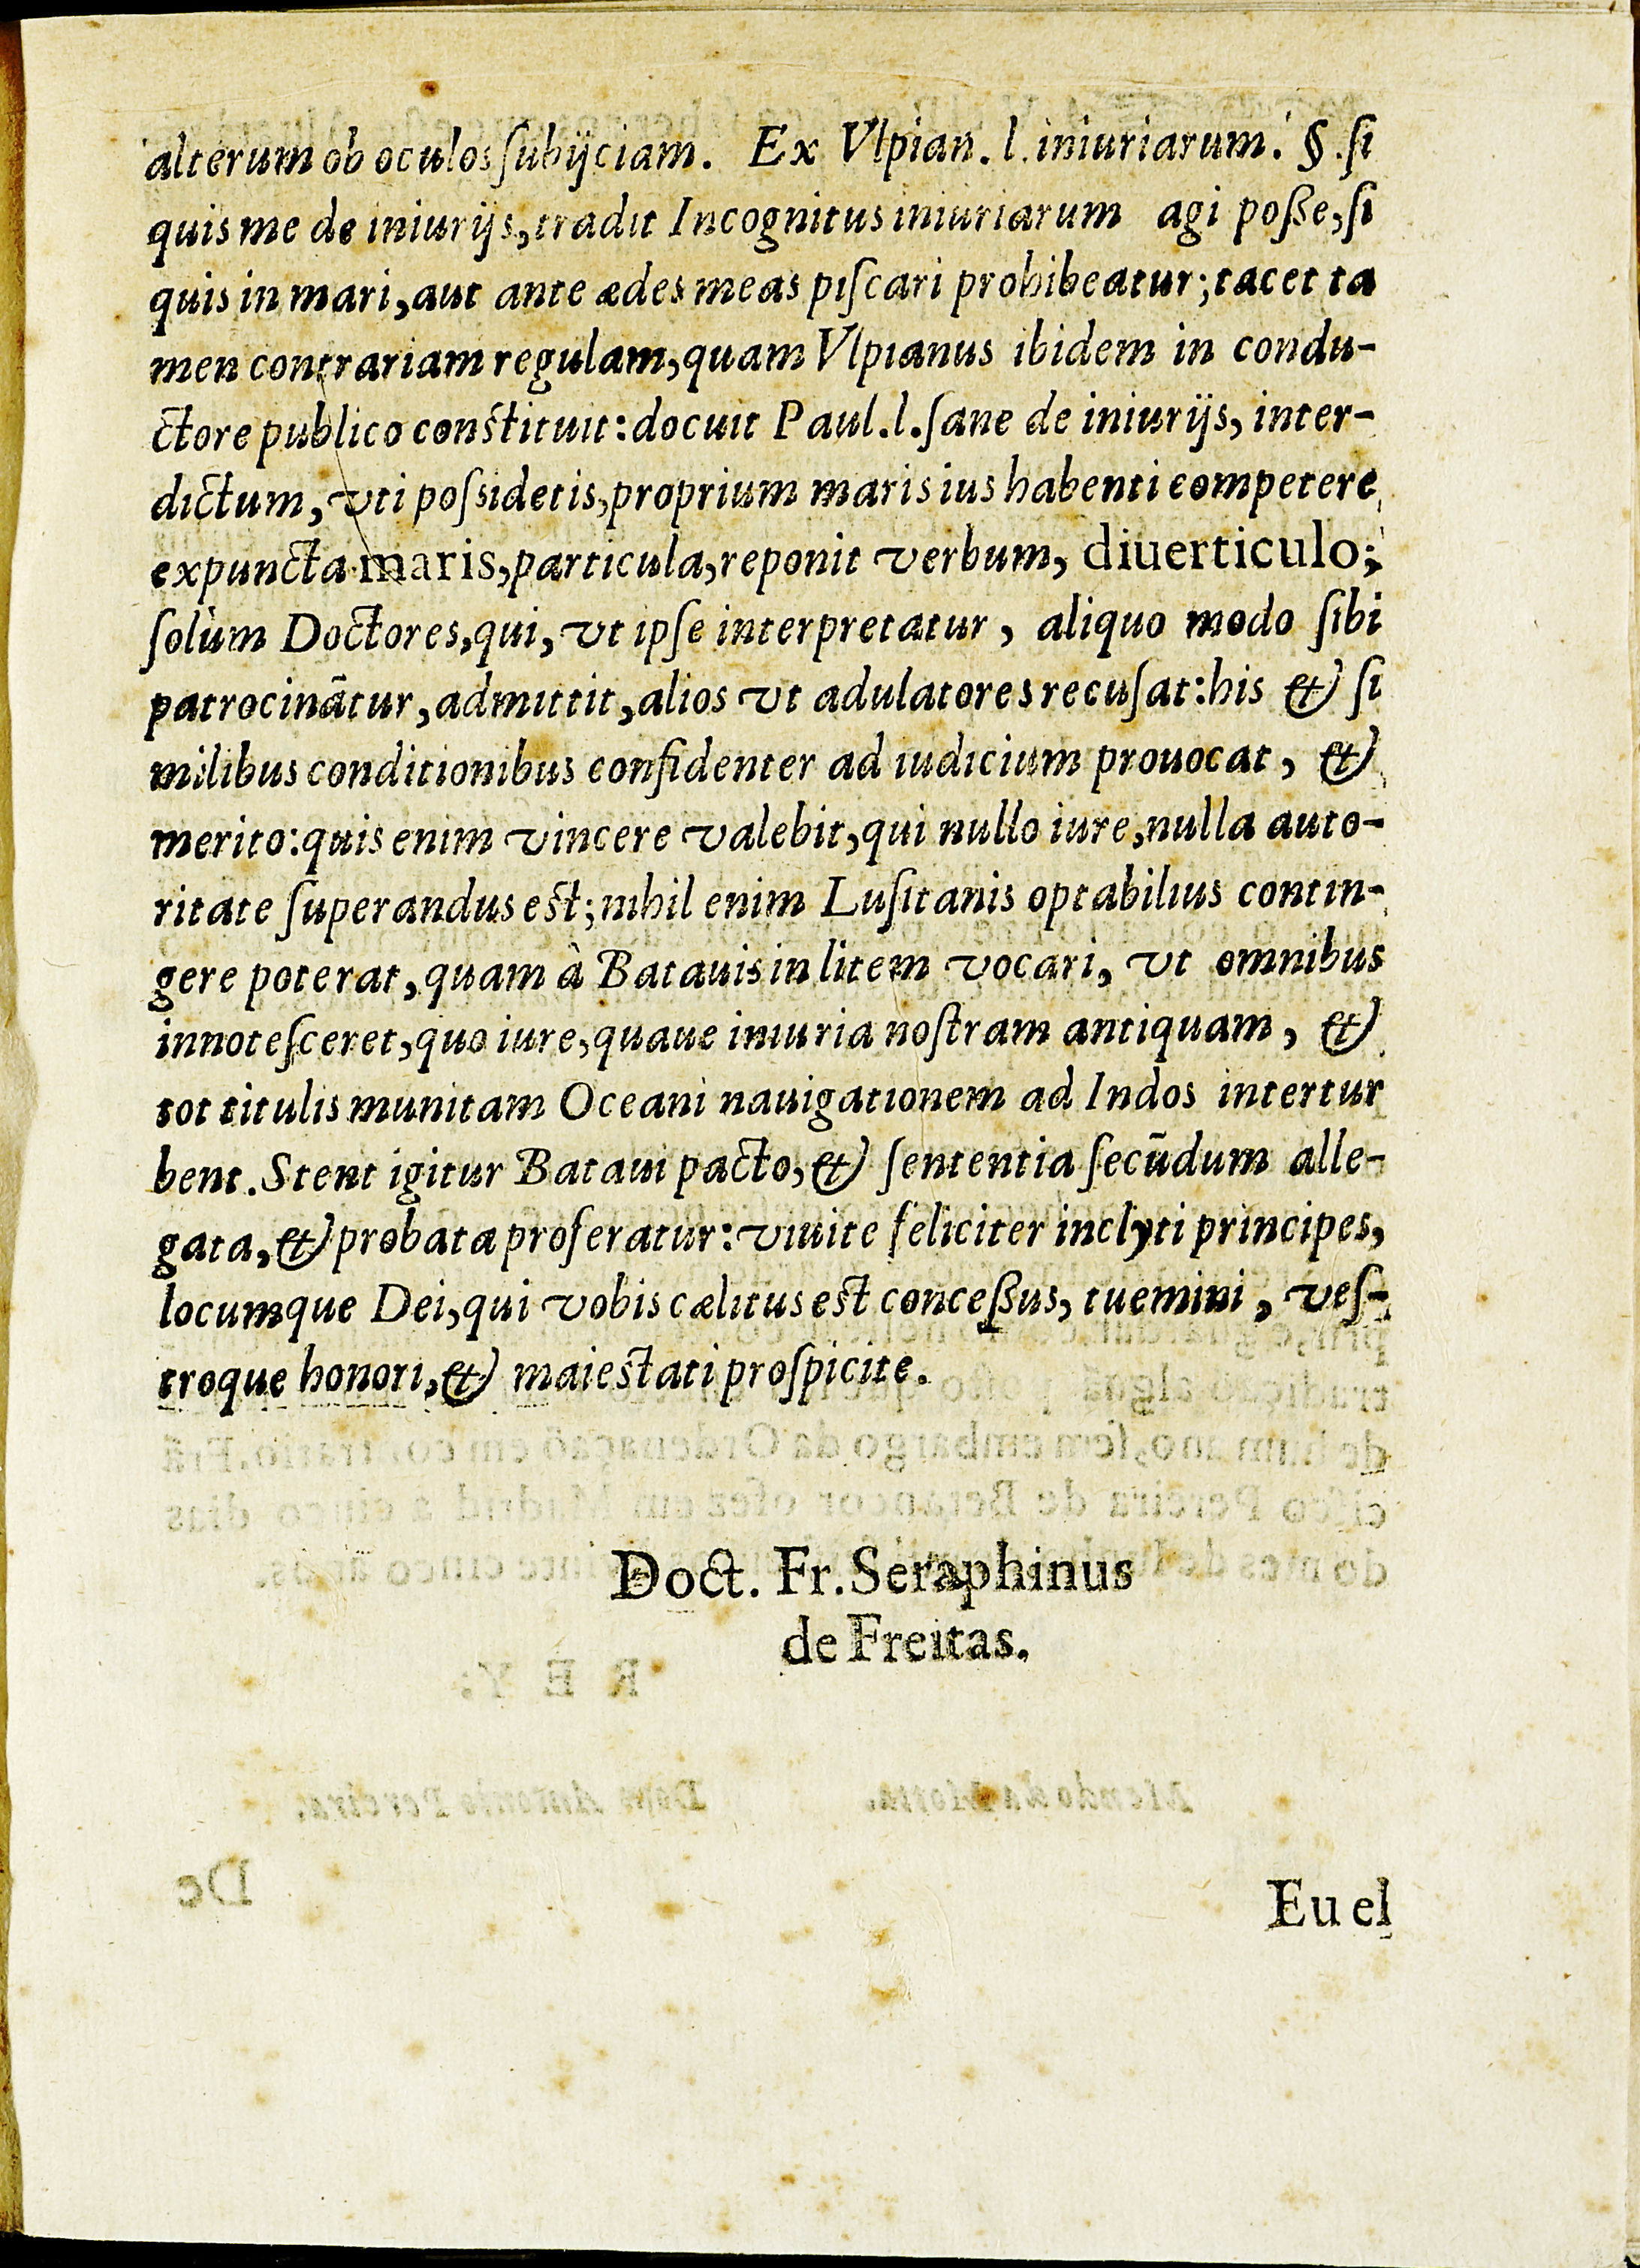 alterum ob oculos ſubijciam. Ex Vlpian. l. iniuriarum. §. ſi
quis me de iniurijs, tradit Incognitus iniuriarum agi poſſe, ſi
quis in mari, aut ante ædes meas piſcari prohibeatur; tacet ta
men contrariam regulam, quam Vlpianus ibidem in condu-
ctore publico conſtituit: docuit Paul. l. ſane de iniurijs, inter-
dictum, vti poſsidetis, proprium maris ius habenti competere,
expuncta maris, particula, reponit verbum, diuerticulo;
ſolùm Doctores, qui, vt ipſe interpretatur, aliquo modo ſibi
patrocinãtur, admittit, alios vt adulatores recuſat: his & ſi
milibus conditionibus confidenter ad iudicium prouocat, &
merito: quis enim vincere valebit, qui nullo iure, nulla auto-
ritate ſuperandus eſt; nihil enim Luſitanis optabilius contin-
gere poterat, quam à Batauis in litem vocari, vt omnibus
innoteſceret, quo iure, quaue iniuria noſtram antiquam, &
tot titulis munitam Oceani nauigationem ad Indos intertur
bent. Stent igitur Bataui pacto, & ſententia ſecũdum alle-
gata, & probata proferatur: viuite feliciter inclyti principes,
locumque Dei, qui vobis cælitus eſt conceſſus, tuemini, veſ-
troque honori, & maieſtati proſpicite.
Doct. Fr. Seraphinus
de Freitas.
Eu el